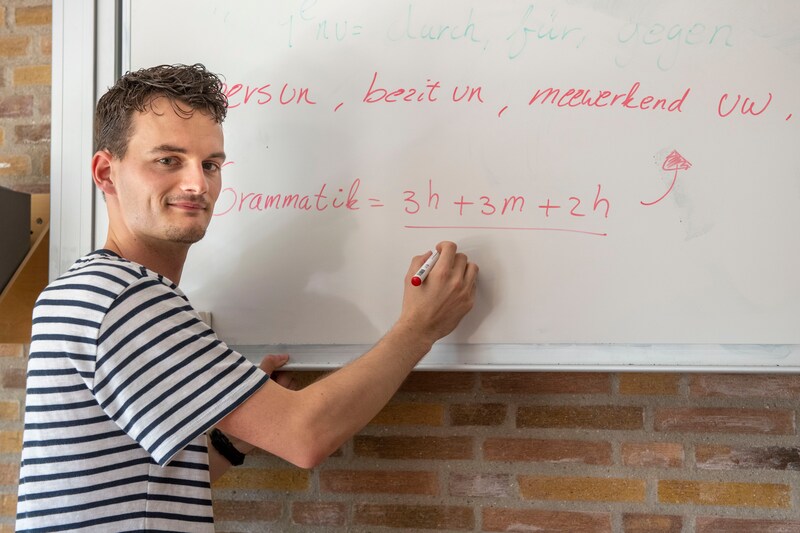 = durch, für, gegen
persvn, bezit vn, meewerkend vw,
Grammatik = 3h + 3m + 2h